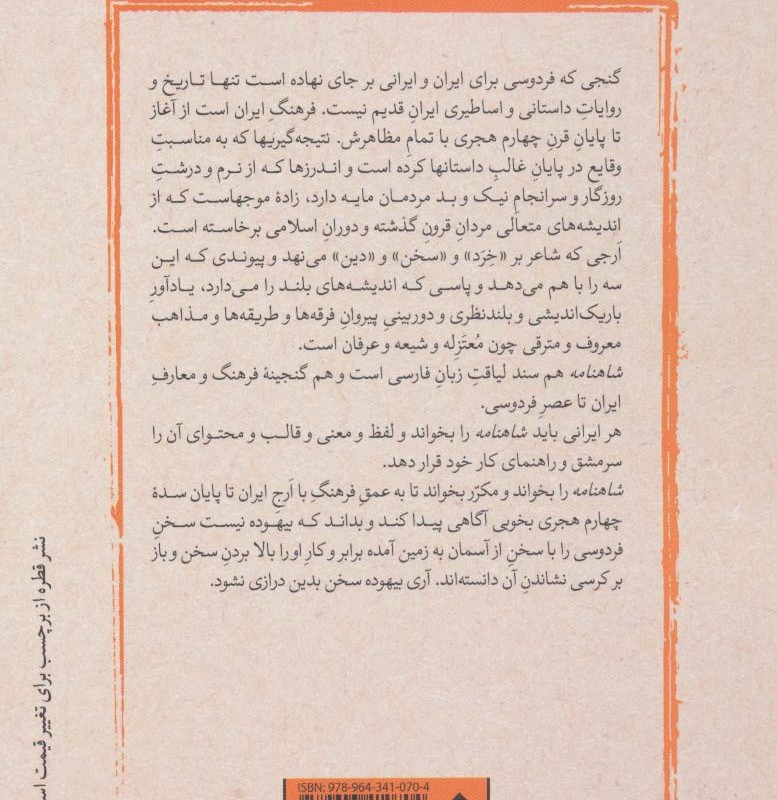 گنجی که فردوسی برای ایران و ایرانی بر جای نهاده است تنها تاریخ و
روایاتِ داستانی و اساطیری ایرانِ قدیم نیست. فرهنگِ ایران است از آغاز
تا پایانِ قرنِ چهارم هجری با تمامِ مظاهرش. نتیجه‌گیریها که به مناسبتِ
وقایع در پایانِ غالبِ داستانها کرده است و اندرزها که از نرم و درشتِ
روزگار و سرانجامِ نیک و بد مردمان مایه دارد، زادهٔ موجهاست که از
اندیشه‌های متعالی مردانِ قرونِ گذشته و دورانِ اسلامی برخاسته است.
اَرجی که شاعر بر «خِرَد» و «سخن» و «دین» می‌نهد و پیوندی که این
سه را با هم می‌دهد و پاسی که اندیشه‌های بلند را می‌دارد، یادآورِ
باریک‌اندیشی و بلندنظری و دوربینیِ پیروانِ فرقه‌ها و طریقه‌ها و مذاهب
معروف و مترقی چون مُعتَزِله و شیعه و عرفان است.
شاهنامه هم سند لیاقتِ زبانِ فارسی است و هم گنجینهٔ فرهنگ و معارفِ
ایران تا عصرِ فردوسی.
هر ایرانی باید شاهنامه را بخواند و لفظ و معنی و قالب و محتوای آن را
سرمشق و راهنمای کار خود قرار دهد.
شاهنامه را بخواند و مکرّر بخواند تا به عمقِ فرهنگِ با اَرجِ ایران تا پایان سدهٔ
چهارم هجری بخوبی آگاهی پیدا کند و بداند که بیهوده نیست سخنِ
فردوسی را با سخنِ از آسمان به زمین آمده برابر و کارِ او را بالا بردنِ سخن و باز
بر کرسی نشاندنِ آن دانسته‌اند. آری بیهوده سخن بدین درازی نشود.
نشر قطره از برچسب برای تغییر قیمت
ISBN: 978-964-341-070-4